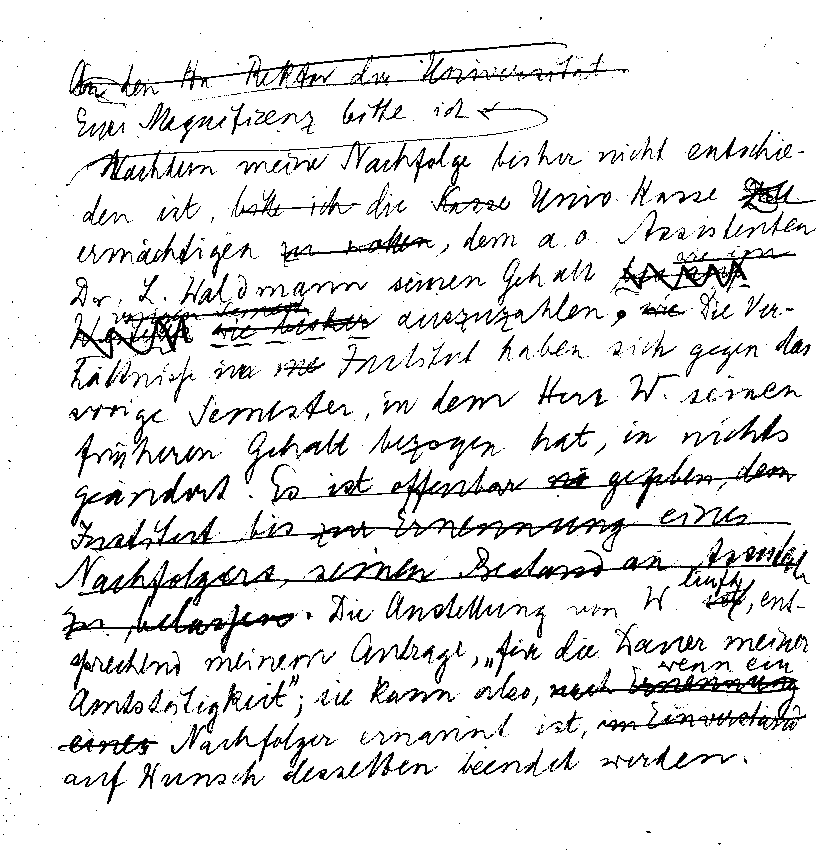 An den Hn Rektor der Universität.
Eure Magnifizenz bitte ich
Nachdem meine Nachfolge bisher nicht entschie-
den ist, bitte ich die Kasse Univ Kasse zu
ermächtigen zu wollen, dem a.o. Assistenten
Dr. L. Waldmann seinen Gehalt wie im
vorigen Semester wie bisher auszuzahlen, wie Die Ver-
hältnisse im Institut haben sich gegen das
vorige Semester, in dem Herr W. seinen
früheren Gehalt bezogen hat, in nichts
geändert. Es ist offenbar gegeben, dem
Institut bis zur Ernennung eines
Nachfolgers, seinen Bestand an Assistent
zu belassen. Die Anstellung von W. läuft, ent-
sprechend meinem Antrage, „für die Dauer meiner
Amtstätigkeit"; sie kann also, nach Ernennung wenn ein
eines Nachfolger ernannt ist, im Einverständ
auf Wunsch desselben beendet werden.